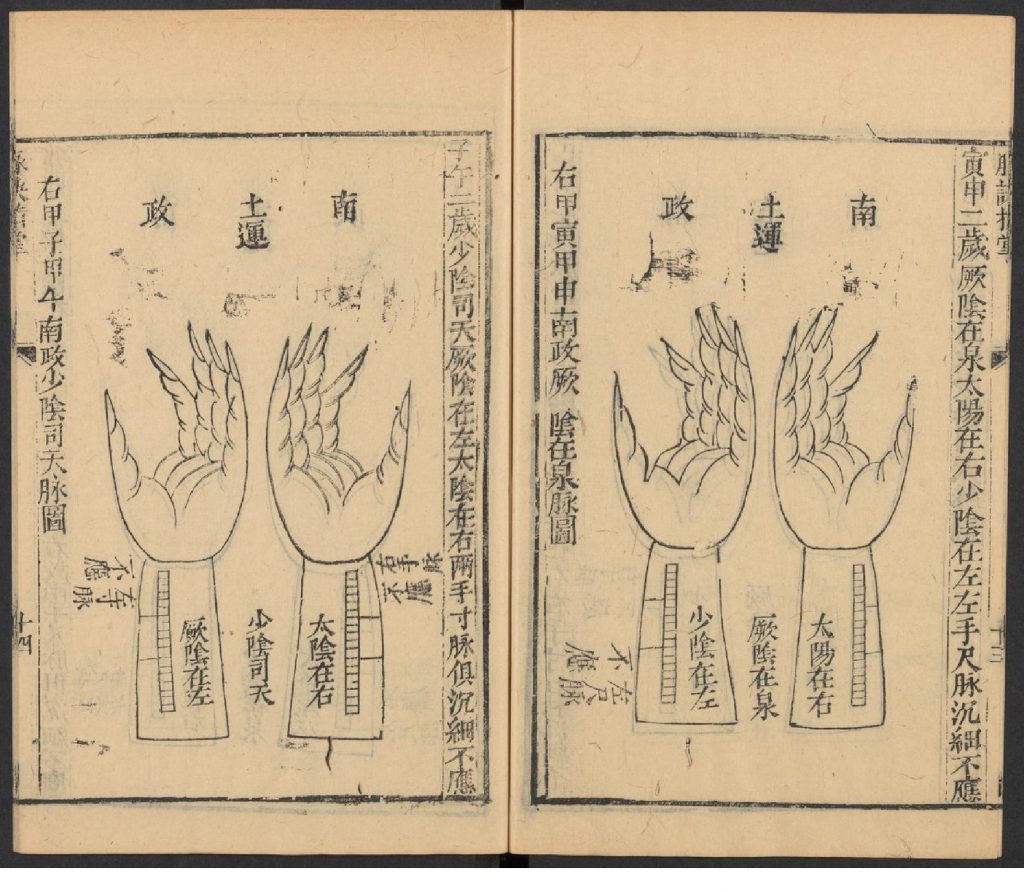 寅申二歲厥陰在泉太陽在右少陰在左左手尺脉沉細不應
南
土運
政
太陽在右
厥陰在泉
少陰在左
左尺
不應脉
右甲寅甲申南政厥陰在泉脉圖
十三
子午二歲少陰司天厥陰在左太陰在右兩手寸脉俱沉細不應
南
土運
政
太陰在右
少陰司天
厥陰在左
脉
不應
不應脉
右甲子甲午南政少陰司天脉圖
十四